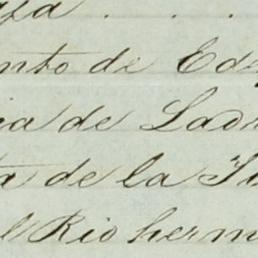 nto de Ed
ia de Lad
ta de la
l Rio herm